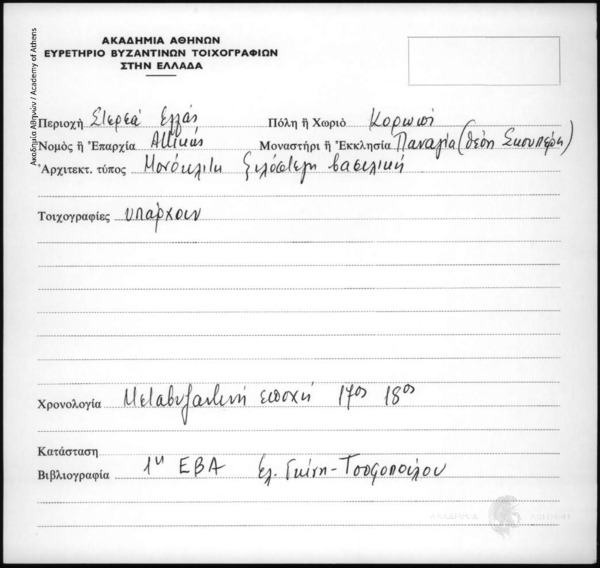 ΑΚΑΔΗΜΙΑ ΑΘΗΝΩΝ
ΕΥΡΕΤΗΡΙΟ ΒΥΖΑΝΤΙΝΩΝ ΤΟΙΧΟΓΡΑΦΙΩΝ
ΣΤΗΝ ΕΛΛΑΔΑ
Ακαδημία Αθηνών / Academy of Athens
Περιοχή Στερεά Ελλάς Πόλη ἤ Χωριό Κορωπί
Νομός ἤ Ἐπαρχία Αττικής Μοναστήρι ἤ Ἐκκλησία Παναγία (θέση Σκουπέρι)
Ἀρχιτεκτ. τύπος Μονόκλιτη ξυλόστεγη βασιλική
Τοιχογραφίες υπάρχουν
Χρονολογία Μεταβυζαντινή εποχή 17ος 18ος
Κατάσταση
Βιβλιογραφία 1η ΕΒΑ Ελ. Γκίνη-Τσοφοπούλου
ΑΚΑΔΗΜΙΑ ΑΘΗΝΩΝ